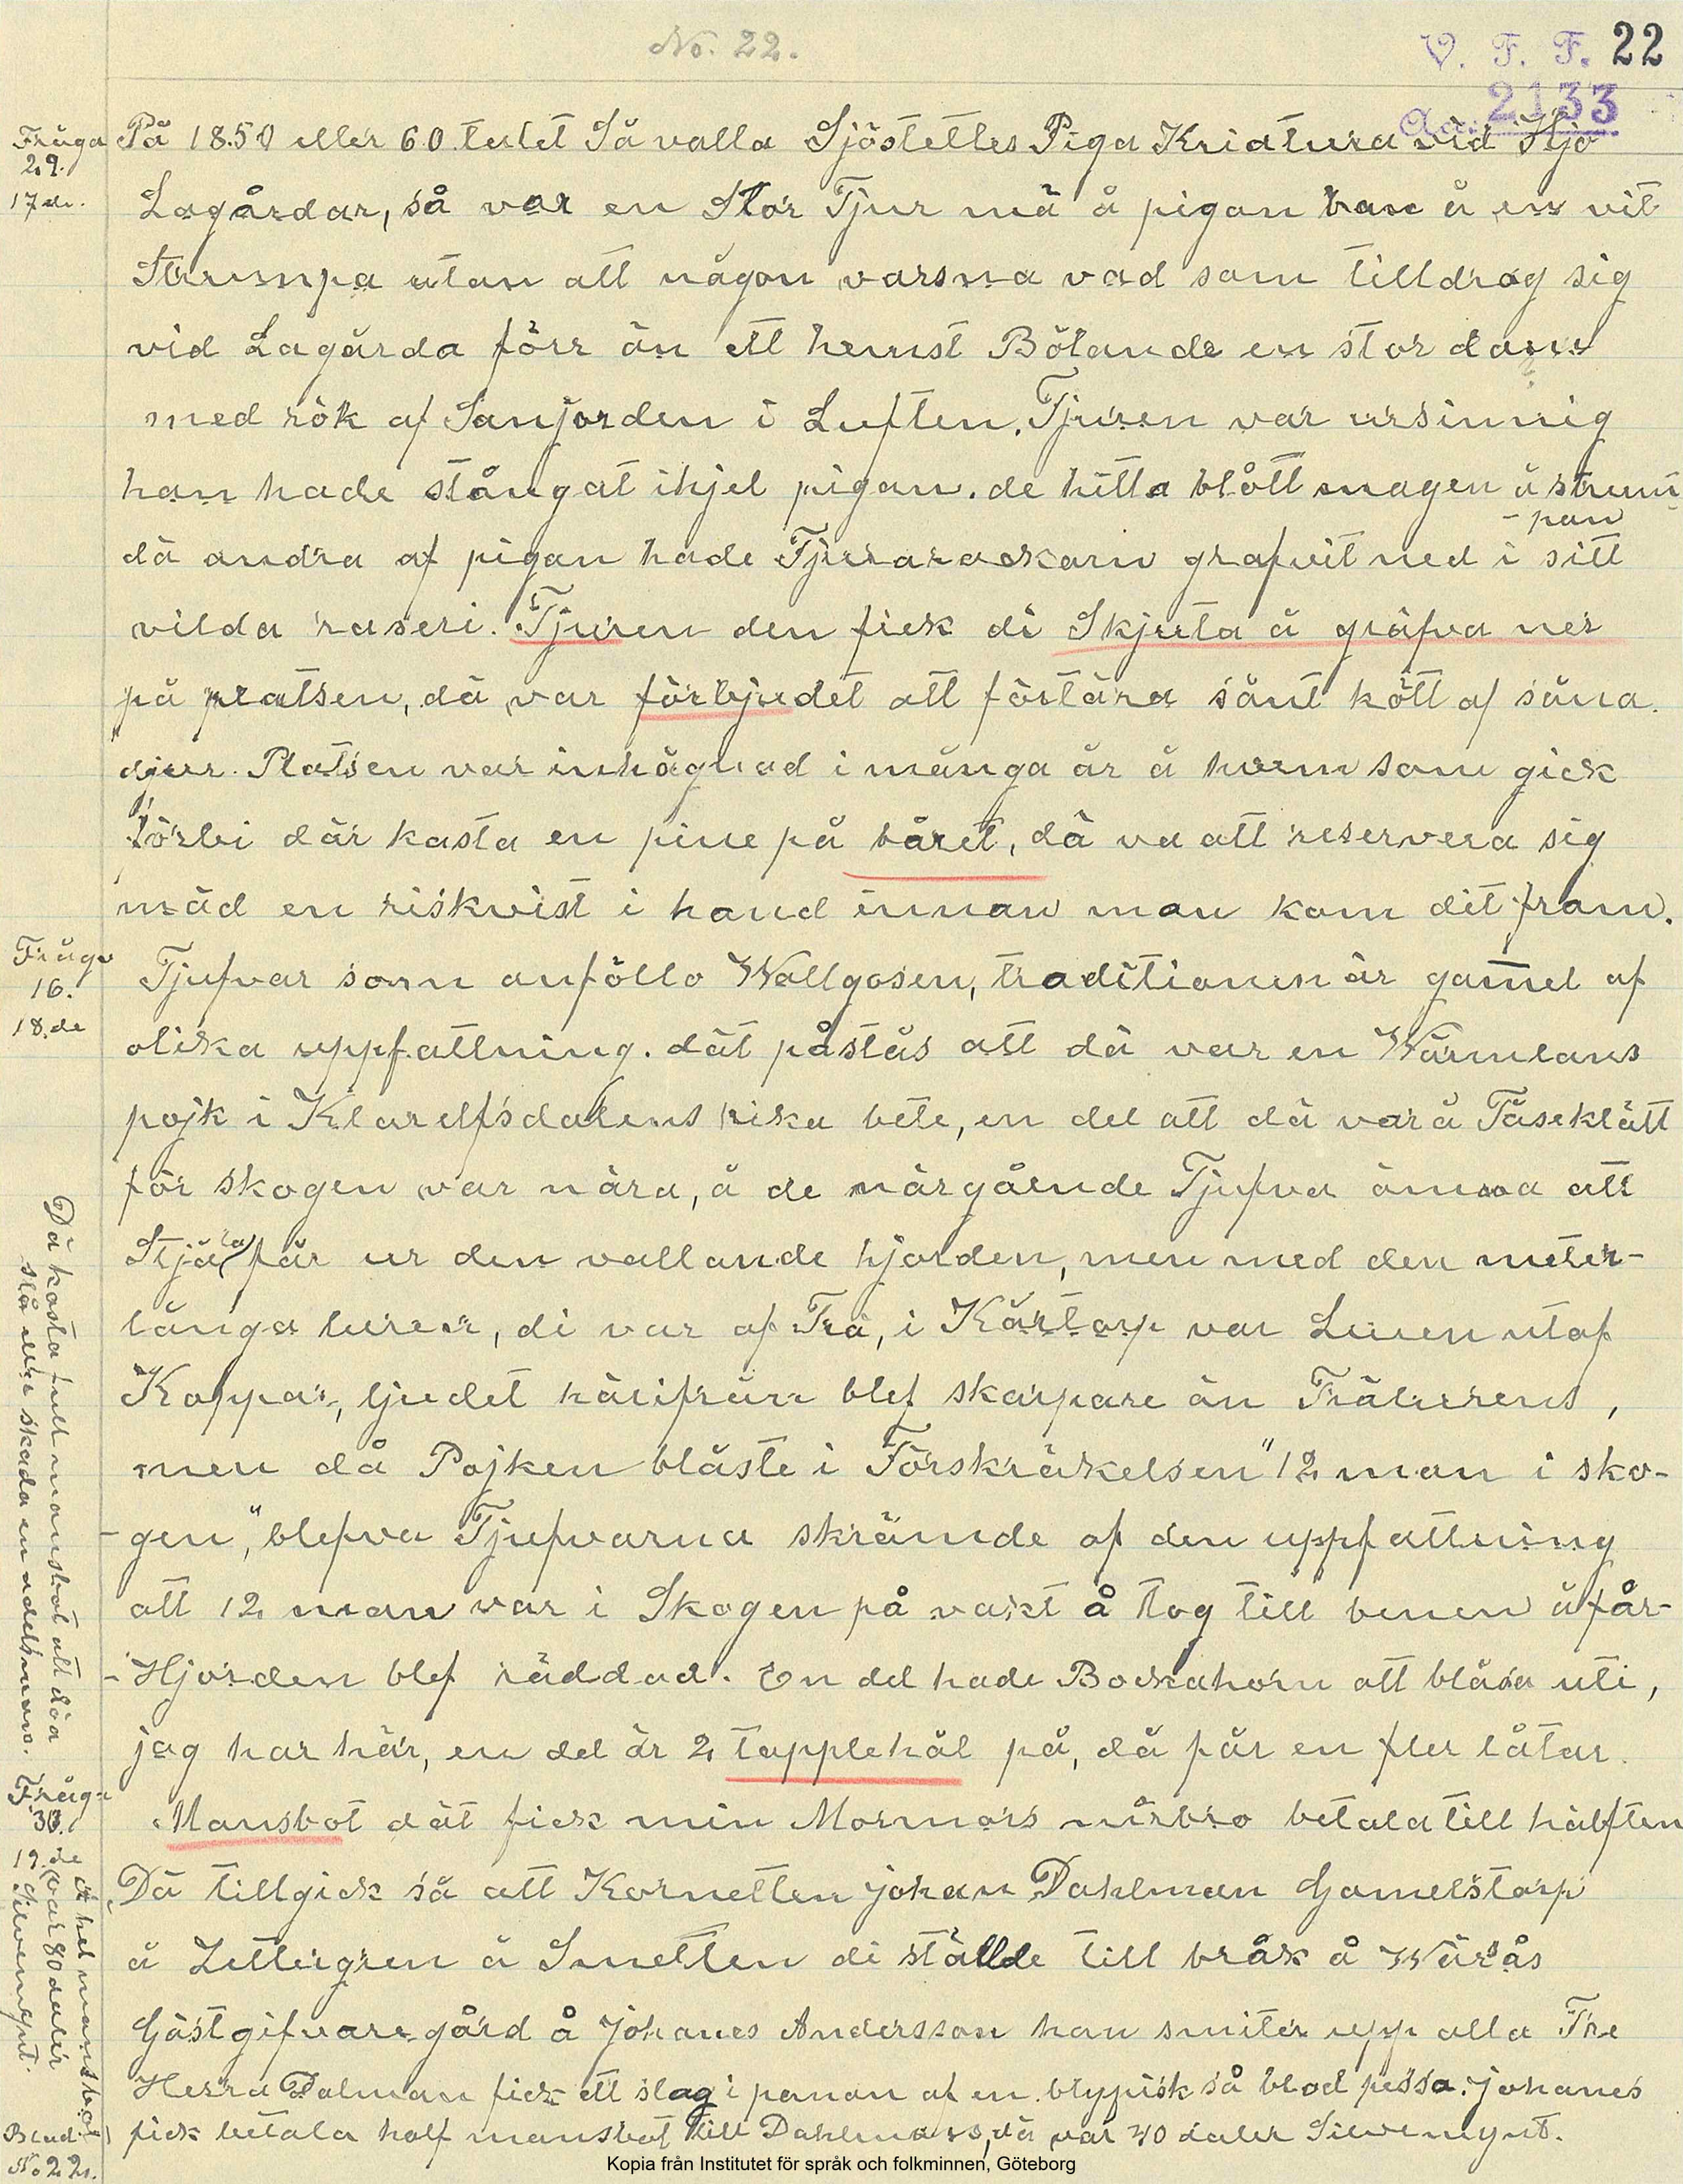 No. 22.
V. F. F. 22
2133
Fråga
29.
17de.
På 1850 eller 60 talet Så valla Sjöstettes Piga Kriatura vid Hjo
Lagårdar, så var en Stor Tjur mä å pigan bar å en vit
Strumpa utan att någon varsna vad som tilldrog sig
vid Lagårda förr än ett hemst Bölande en stor dam
med rök af Sanjorden i Luften. Tjuren var ursinnig
han hade stångat ihjel pigan. de hitta blått magen å strum
-pan
dä andra af pigan hade Tjurarackarn grafvit ned i sitt
vilda raseri. Tjuren den fick di Skjuta å gräfva ner
på platsen, dä var förbjudet att förtära sånt kött af såna
djur. Platsen var inhägnad i många år å hvem som gick
förbi där kasta en pine på båret, dä va att reservera sig
mäd en riskvist i hand innan man kom dit fram.
Fråga
16.
18.de
Tjufvar som anföllo Wallgosen, traditionen är gamel af
olika uppfattning. dät påstås att dä var en Wärmlans
pojk i Klarelfsdalens rika bete, en del att dä var å Fåseklätt
för skogen var nära, å de närgående Tjufva ämna att
Stjäla får ur den vallande hjorden, men med den meter-
långa luren, di var af Trä, i Kårtorp var Luren utaf
Koppar, ljudet härifrån blef skarpare än Trälurens,
men då Pojken blåste i Förskräkelsen "12 man i sko-
-gen," blefva Tjufvarna skrämde af den uppfattning
att 12 man var i Skogen på vakt å tog till benen å får-
-Hjorden blef räddad. En del hade Bockahorn att blåsa uti,
jag har här, en del är 2 tapplehål på, då får en fler låtar.
Då kosta full mansbot att slå
slå eller skada en adelsman.
Fråga
33.
19.de
Mansbot dät fick min Mormors mirbro betala till hälften
Dä tillgick så att Kornetten Johan Dahlman Gamelstorp
å Zettergren å Smetten di ställde till bråk å Wärås
Gästgifvaregård å Johanes Andersson han smiter upp alla Tre
Herra Dalman fick ett slag i panan af en blypisk så blod pissa. Johanes
fick betala half mansbot till Dahlmans, dä var 40 daler Silvemynt.
hel mansbot
var 80 daler
Silvemynt.
Blad
No 22.
Kopia från Institutet för språk och folkminnen, Göteborg